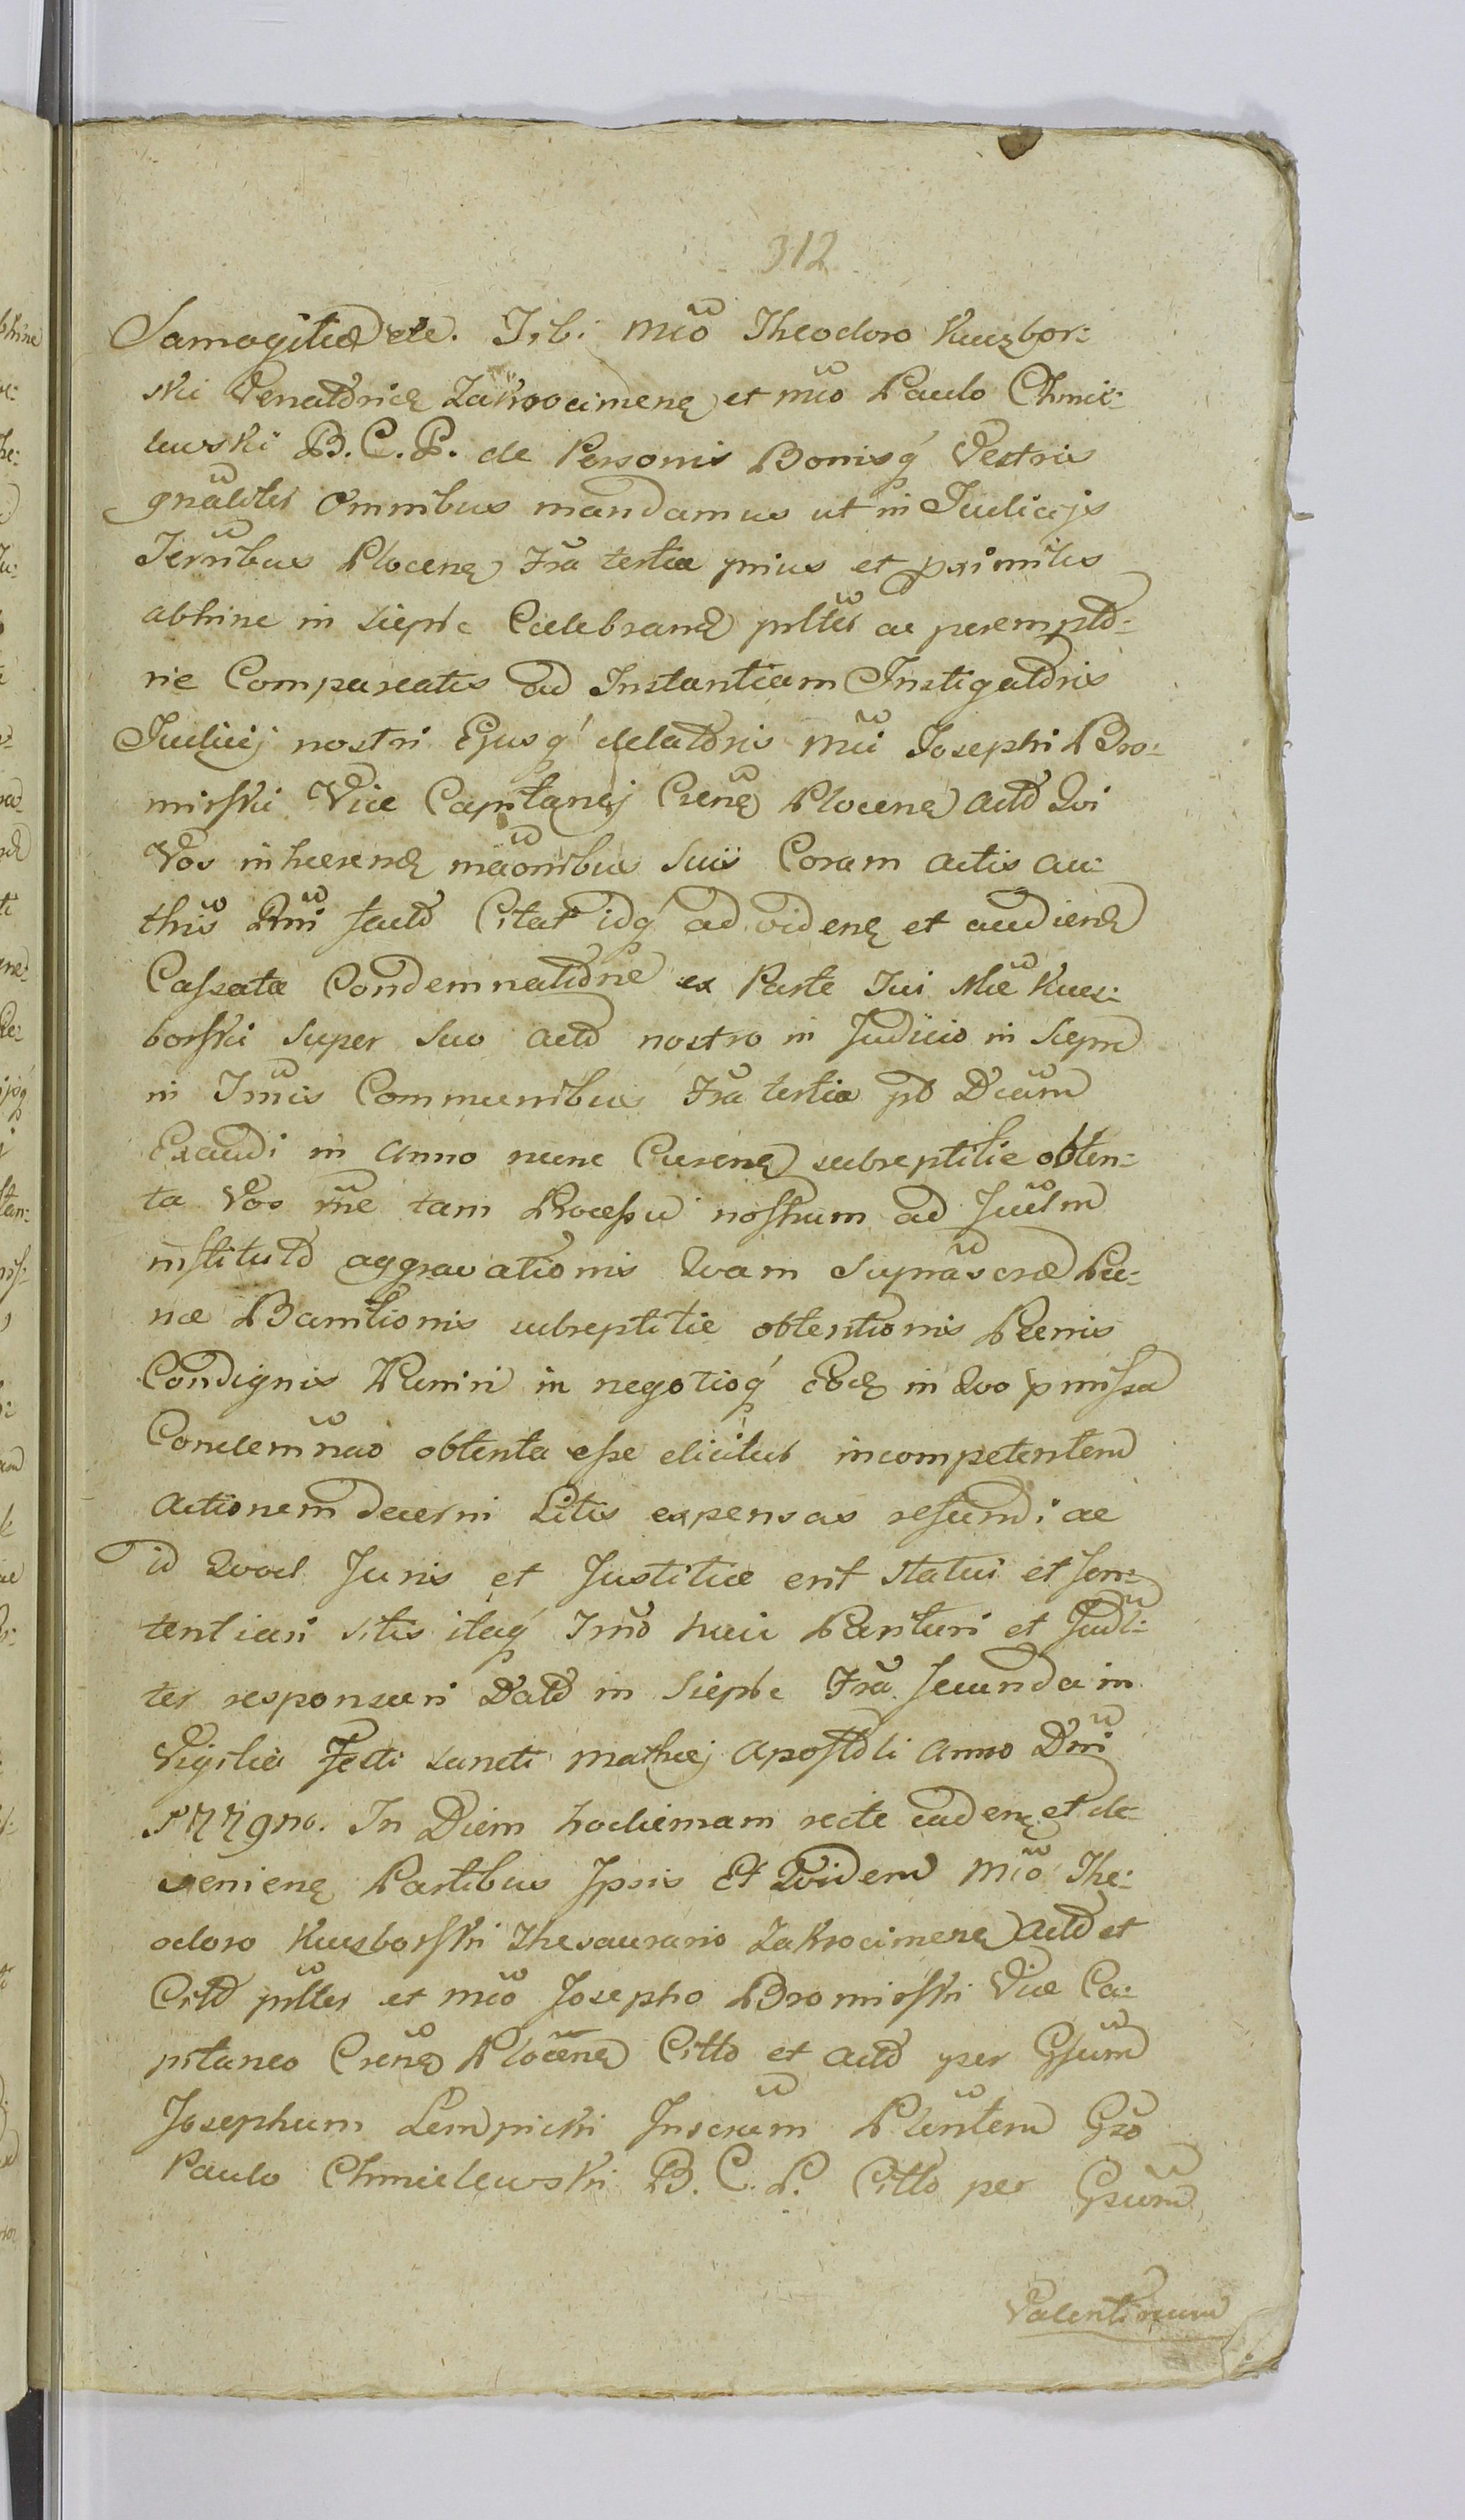 312
Samogitiæ etc. Tibi Mco Theodoro Kuczbor:
ski Venatoricz Zakrocimenę et mco Paulo Chmie:
lewski B. C. P. de Personis Bonisq́ Vestris
gnaliter Omnibus mandamus ut in Judicijs
Terribus Plocenę Fra tertia prius et proximius
abhinc in Sieprc Celebrand pnltter ac perempto:
rie Compareatis ad Instantiam Instigatoris
Judicij nostri Ejusq́ delatoris Mci Josephi Bro:
mirski Vice Capitanej Crenę Plocenę Acto Qvi
Vos inhærendę mãonibus suis Coram Actis au:
thcis Dni facto Citat idq́ ad videnę et audiend
Cassatæ Condemnationē ex Parte Tui Mce Kucz:
borski super suo acto nostro in Judicio in Siepre
in Trmis Communibus Fra tertia po Dcam
Exaudi in Anno nunc Curenę subreptitie obten:
ta Vos rne tam Processu nostrum ad Judlm
institutd aggravationis Qvam suprascræ Pœ:
næ Bannitionis subreptitie obtentionis Pœnis
Condignis Puniri in negotioq́ Eodę in Qvo p̄missa
Condemnao obtenta esse dicitur incompetentem
Actionem decerni Litis expensas refundi ac
id Qvod Juris et Justitiæ erit Statui et sen:
tentiari sitis itaq́ Trno huic Parituri et Judi:
ter responsuri Datd in Sieprc Fra secunda in
Vigilia Festi Sancti Mathæj Apostoli Anno Dni
1779no. In Diem hodiernam recte cadenę et de
venienę Partibus Ipsis Et Qvidem Mco The:
odoro Kuczborski Thesaurario Zakrocimenę Acto et
Citto pnltter et mco Josepho Bromirski Vice Ca:
pitaneo Crenę Plocenę Citto et Acto per Gsum
Josephum Lempicki Juscrum Plentem Gso
Paulo Chmielewski B. C. P. Citto per Gsum
Valentinum